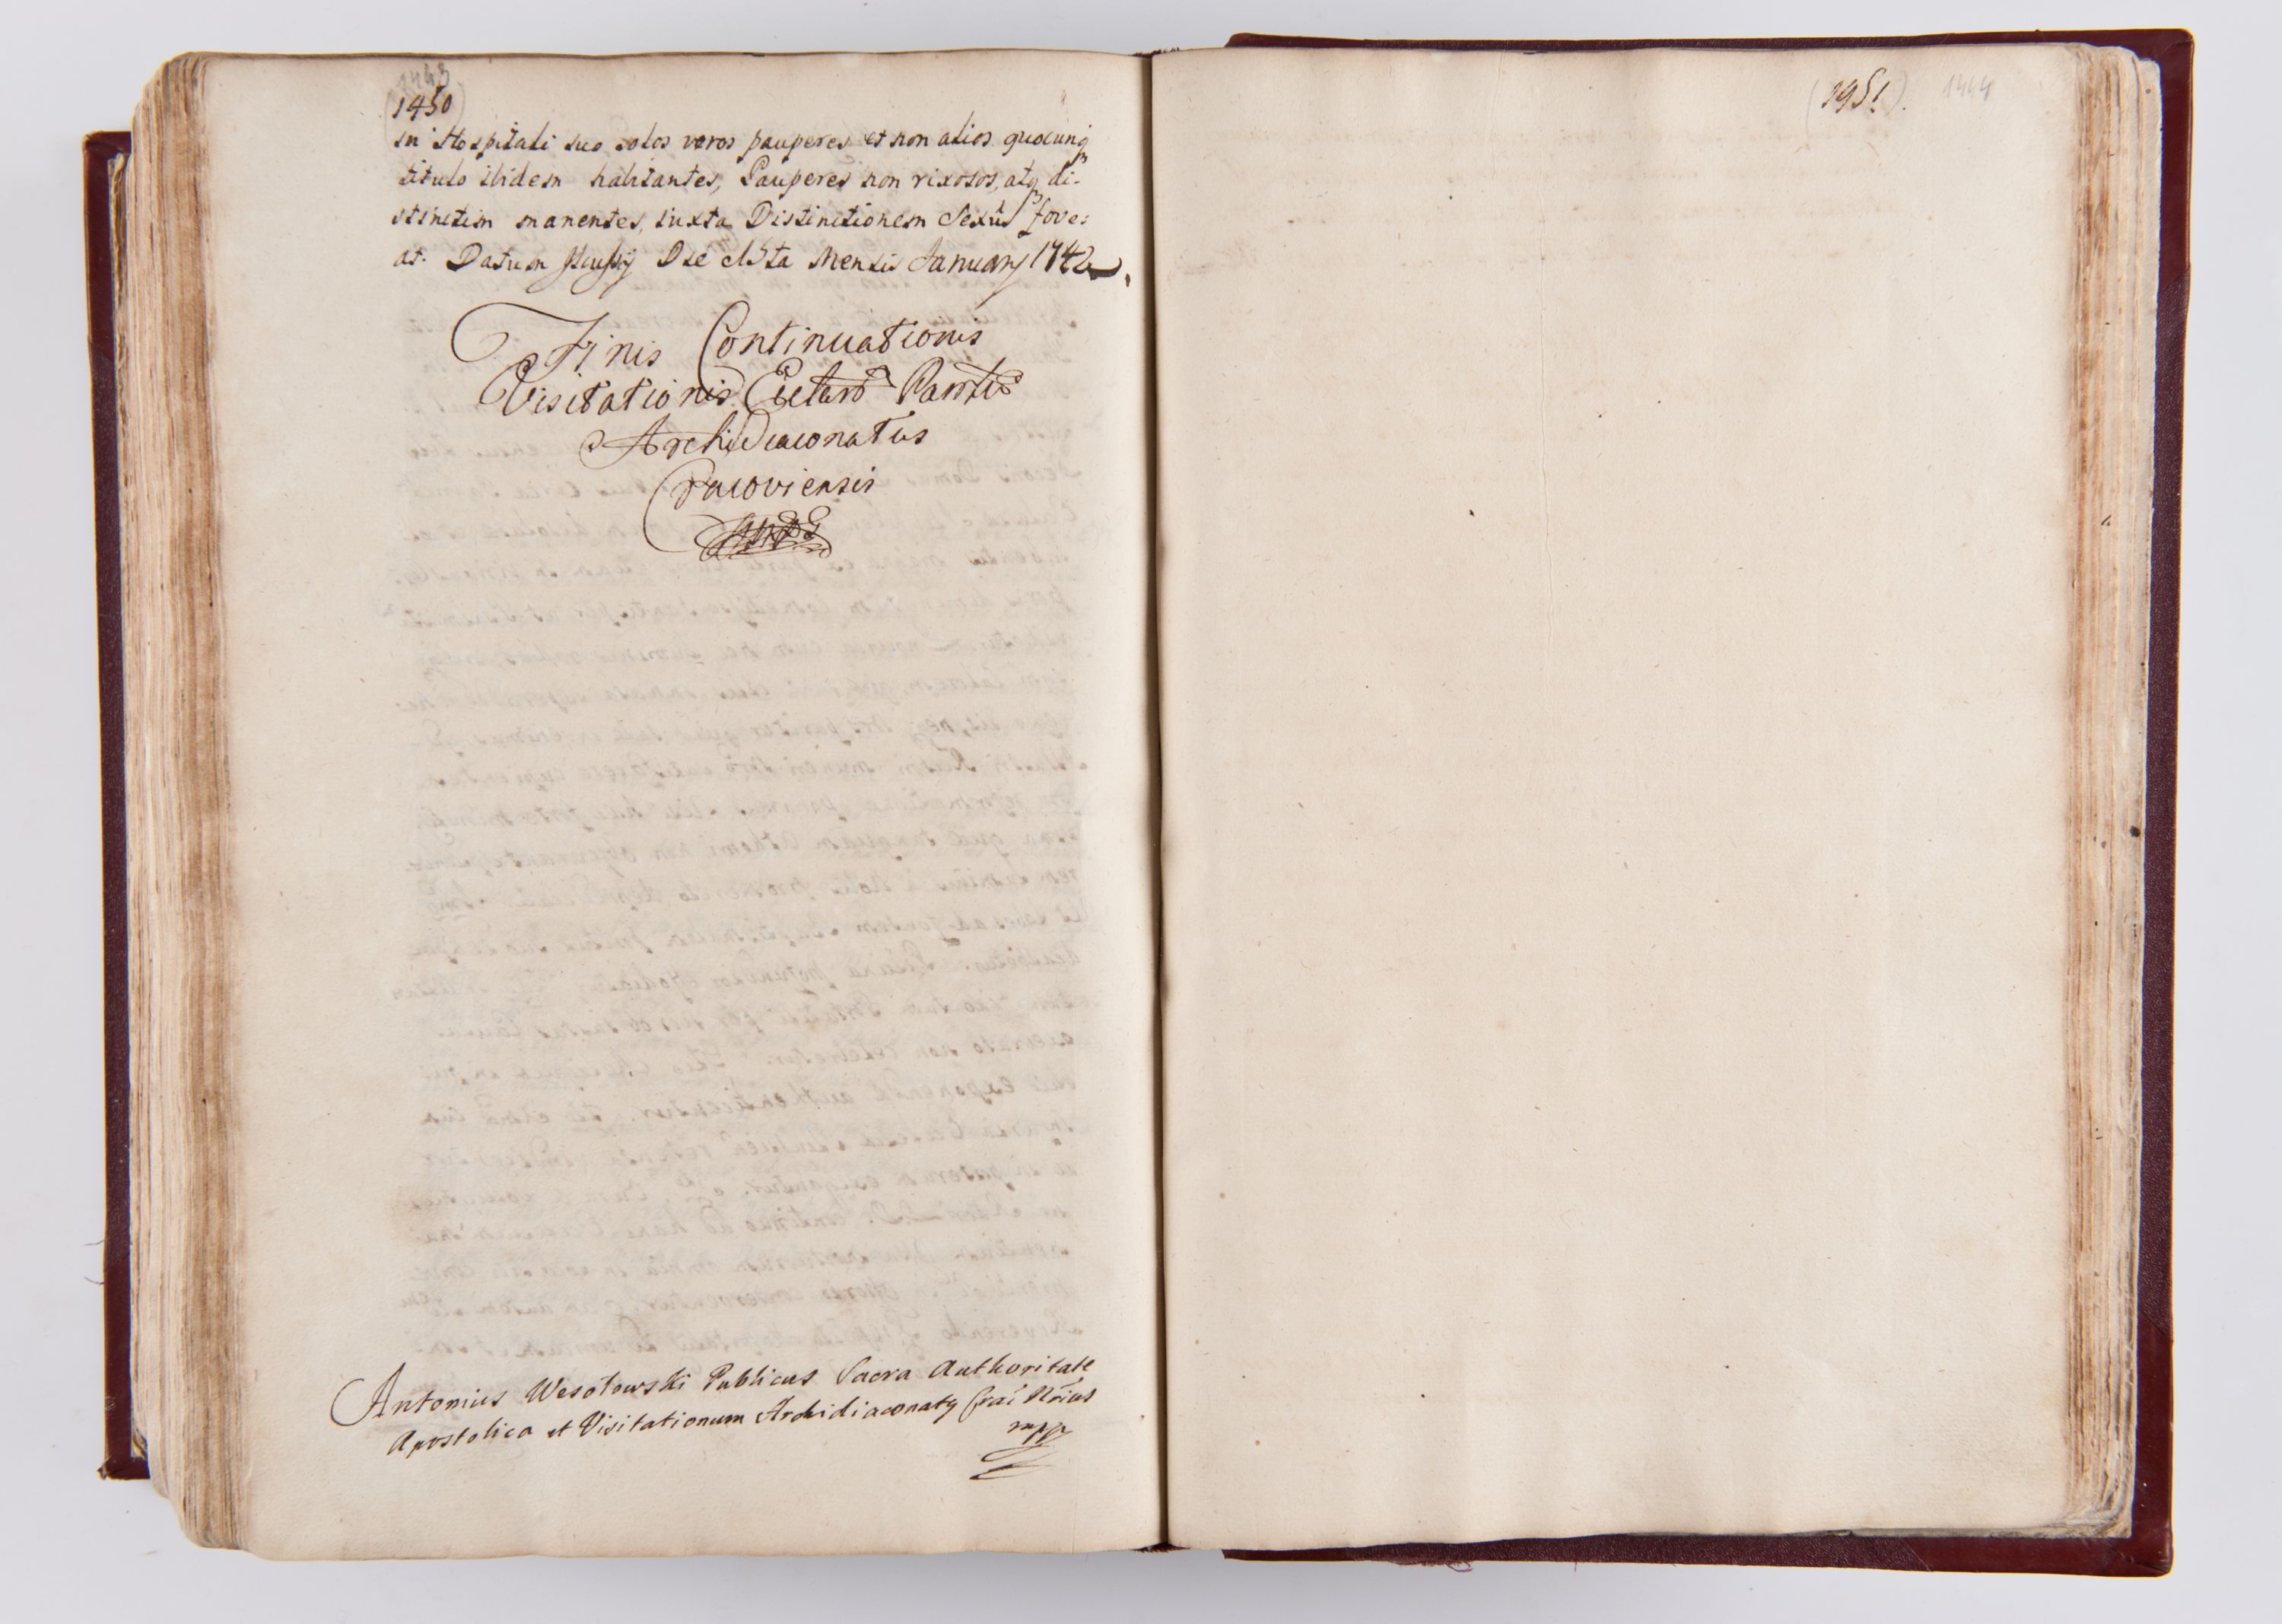 1443
(1450)
in Hospitali suo solos veros pauperes et non alios quocunq
titulo ibidem habitantes, Pauperes non rixosos, atq di-
stinctim manentes, iuxta Distinctionem Sexûs fove:
at. Datum Die Mensis January 1742.
Finis Continuationis
Visitationis Partis
ArchiDiaconatus
Cracoviensis
Antonius Wesołowski Publicus Sacra Authoritate
Apostolica et Visitationum Archidiaconatq Crac̃ Nr̃ius
mpp
(1951). 1444